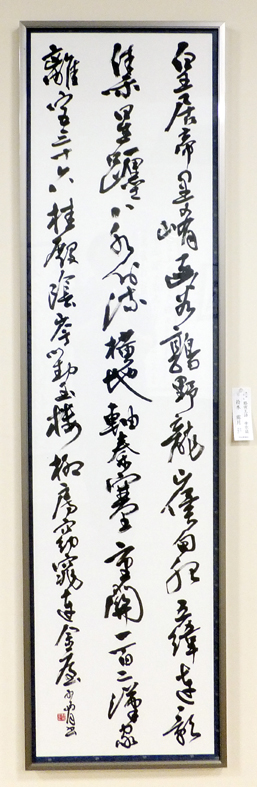 皇居帝里崤函谷鶉野龍山侯甸服五緯連影
集星躔八水分流横地軸秦塞重關一百二漢家
離宮三十六桂殿陰岑對玉樓椒房窈窕連金屋